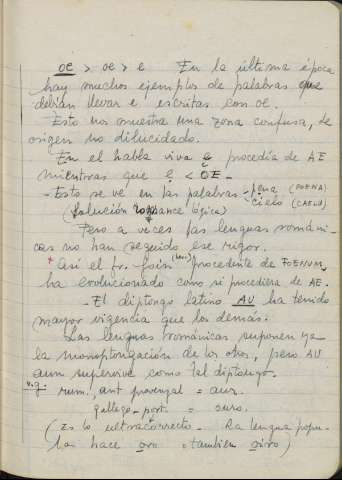 oe > oe > e En la última época
hay muchos ejemplos de palabras que
debían llevar e escritas con oe.
Esto nos muestra una zona confusa, de
origen no dilucidado.
En el habla viva ę procedía de AE
mientras que ẹ < OE.
- Esto se ve en las palabras - pena (POENA)
- cielo (CAELU)
(solución romance lógica)
Pero a veces las lenguas románi-
cas no han seguido ese rigor.
+ Así el fr. foin procedente de FOENUM,
ha evolucionado como si procediera de AE.
- El diptongo latino AU ha tenido
mayor vigencia que los demás.
Las lenguas románicas suponen ya
la monoptongación de los otros, pero AU
aun supervive como tal diptongo.
v.g. rum., ant provenzal = aur.
gallego-port. = ouro.
(Es lo ultracorrecto. La lengua popu-
lar hace oro o también oiro)